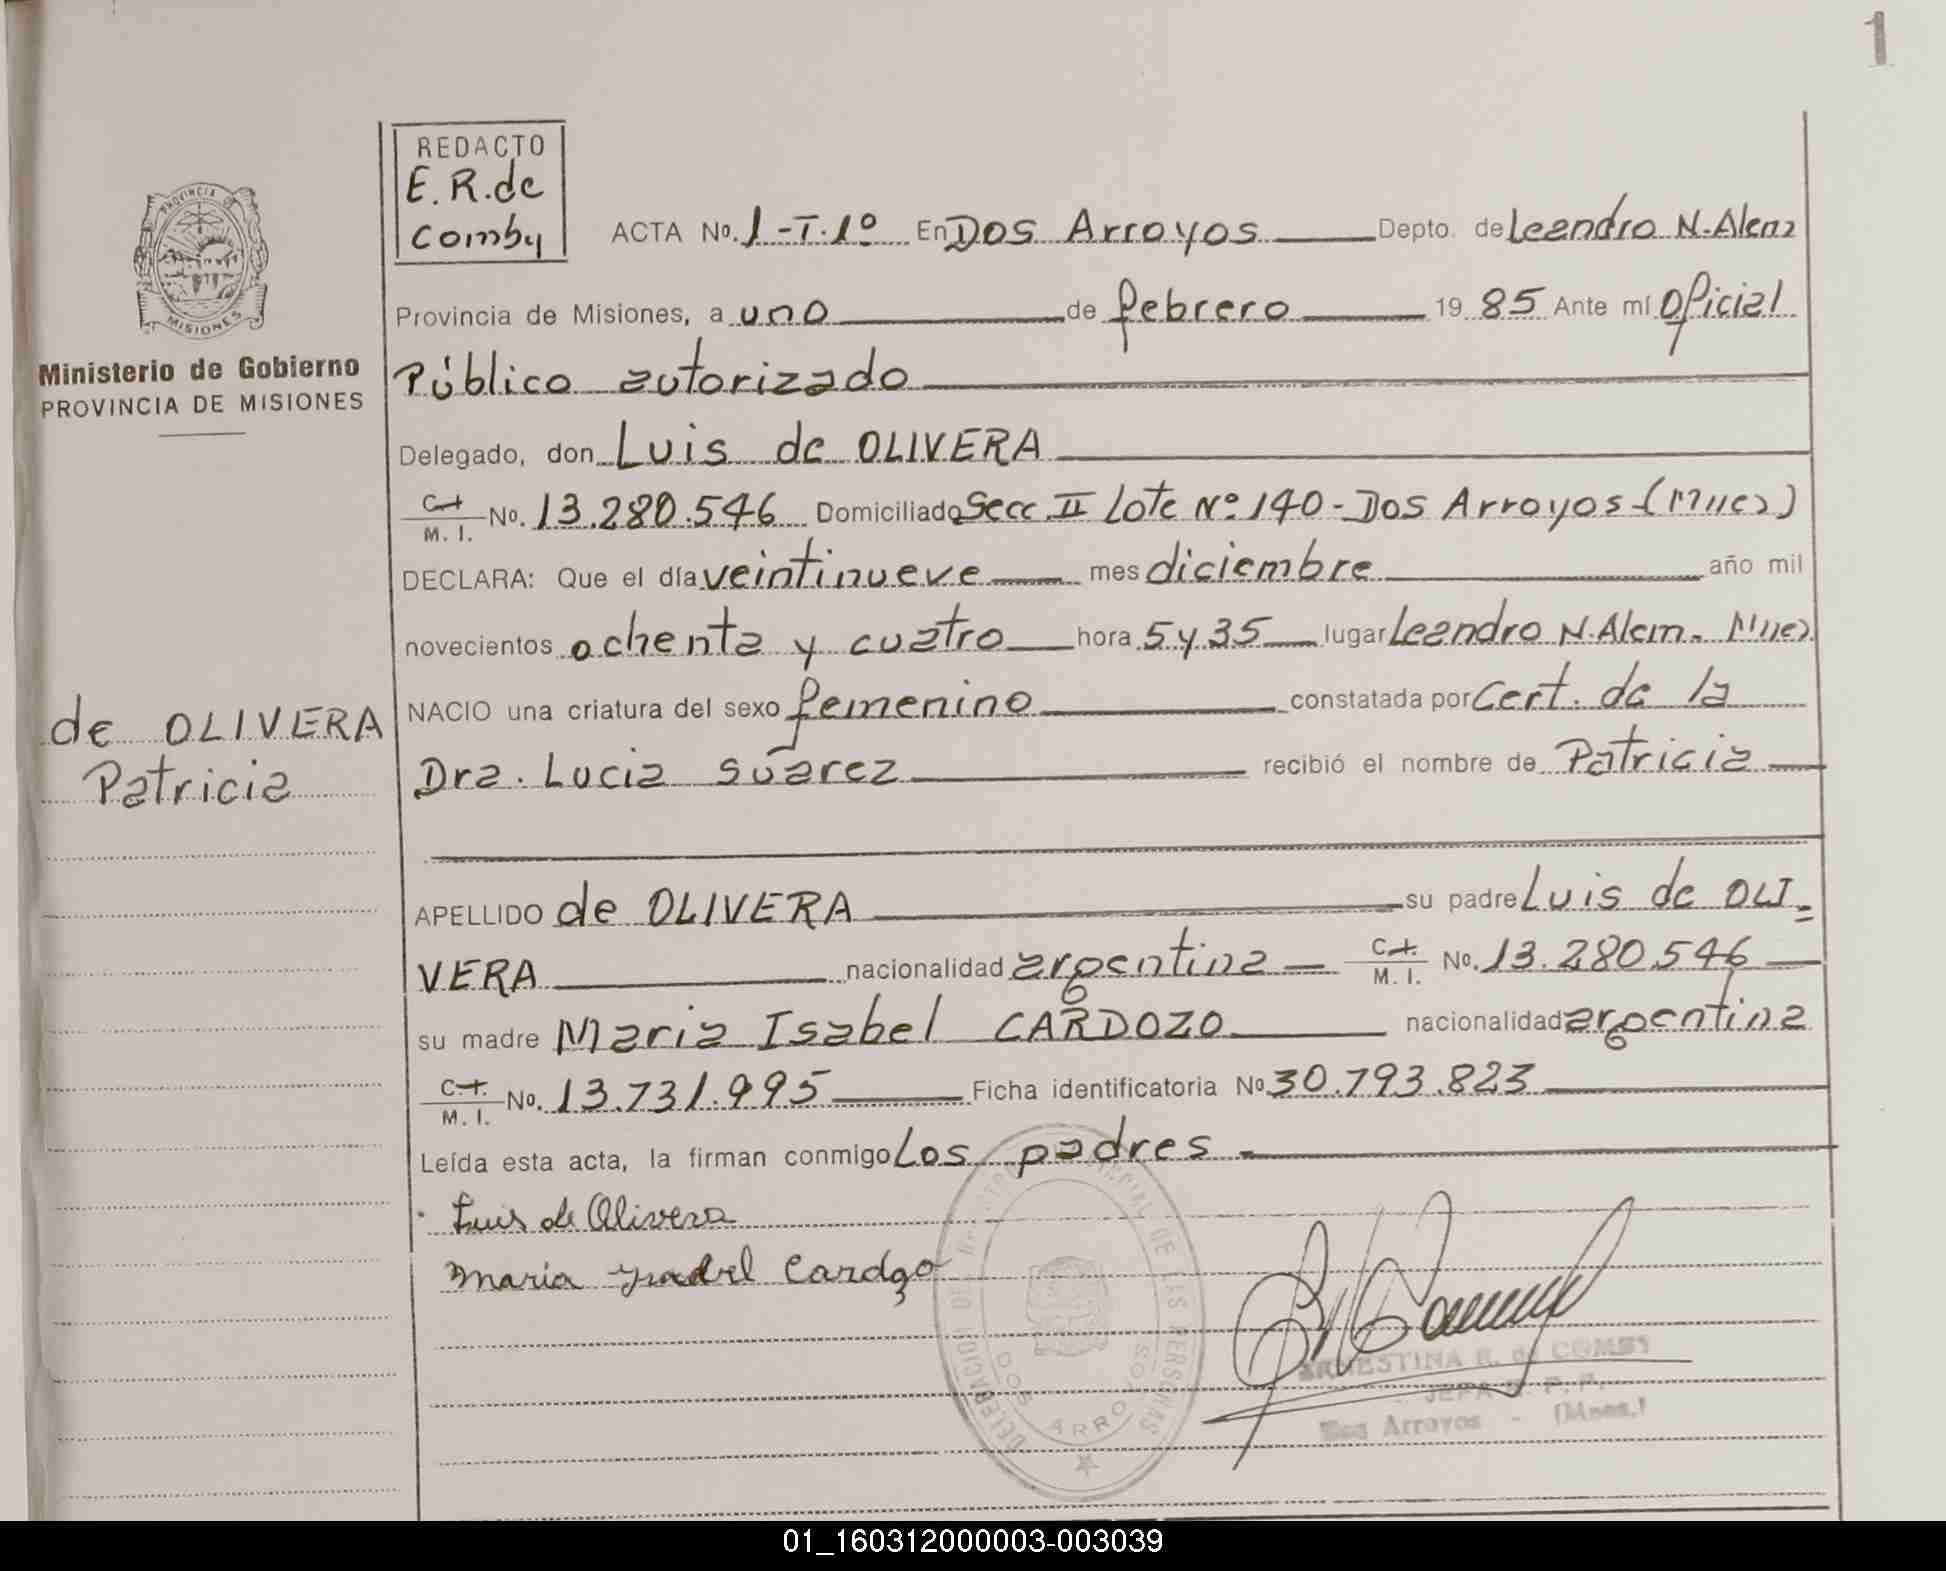 1
REDACTO
E. R. de
Comby
ACTA No. 1-T.1º En Dos Arroyos Depto. de Leandro N. Alem
Provincia de Misiones, a uno de febrero 19 85 Ante mí Oficial
Público autorizado
PROVINCIA DE
MISIONES
Ministerio de Gobierno
PROVINCIA DE MISIONES
Delegado, don Luis de OLIVERA
C.I.
M. I. No. 13.280.546 Domiciliado Secc II Lote Nº 140 - Dos Arroyos - (Mnes)
DECLARA: Que el día veintinueve mes diciembre año mil
novecientos ochenta y cuatro hora 5 y 35 lugar Leandro N. Alem. Mnes.
de OLIVERA
Patricia
NACIO una criatura del sexo femenino constatada por Cert. de la
Dra. Lucia Suárez recibió el nombre de Patricia
APELLIDO de OLIVERA su padre Luis de OLI-
VERA nacionalidad argentina C.I. M. I. No. 13.280.546
su madre Maria Isabel CARDOZO nacionalidad argentina
C.I.
M. I. No. 13.731.995 Ficha identificatoria No 30.793.823
Leída esta acta, la firman conmigo Los padres
Luis de Olivera
Maria Ysabel Cardozo
DELEGACION DEL REGISTRO PROVINCIAL DE LAS PERSONAS
DOS ARROYOS
ERNESTINA R. de COMBY
JEFA R. P. P.
Dos Arroyos - (Mnes.)
01_160312000003-003039